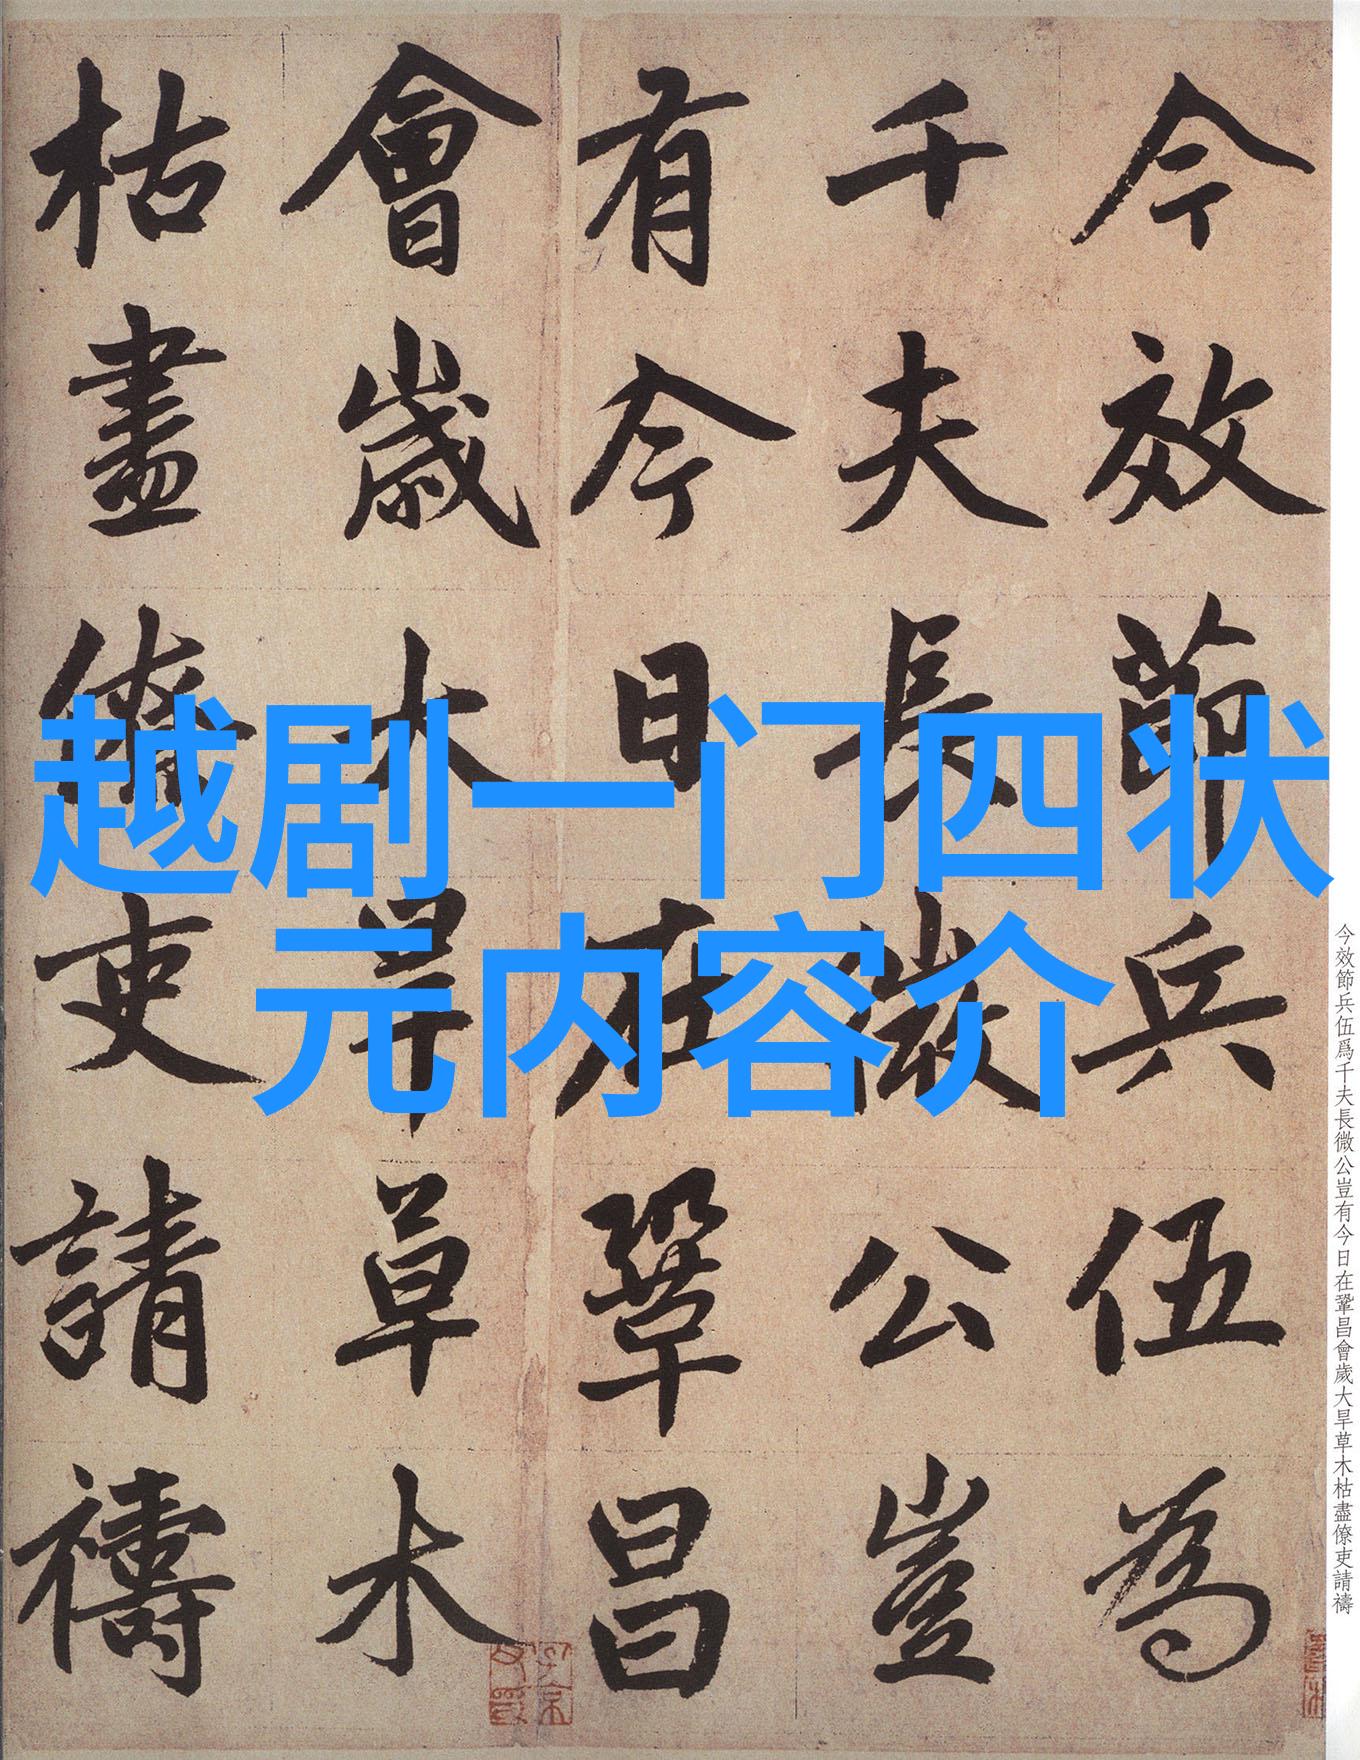 今效節兵伍為
千夫長微公豈
有今日在鞏昌
會歲大旱草木
枯盡僚吏請禱
越剧一门四状
元内容介
今效節兵伍爲千夫長微公豈有今日在鞏昌會歲大旱草木枯盡僚吏請禱